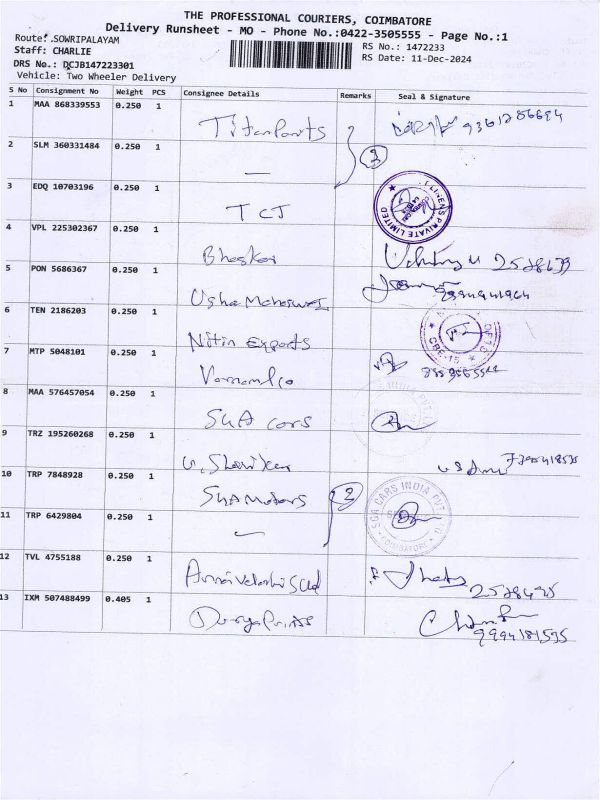 THE PROFESSIONAL COURIERS, COIMBATORE
Delivery Runsheet - MO - Phone No.:0422-3505555 - Page No.:1
Route: SOWRIPALAYAM
RS No.: 1472233
Staff: CHARLIE
RS Date: 11-Dec-2024
DRS No.: DCJB147223301
Vehicle: Two Wheeler Delivery
S No Consignment No Weight PCS Consignee Details Remarks Seal & Signature
1 MAA 868339553 0.250 1 Titan Parts 9361286694
2 SLM 360331484 0.250 1 — 2
3 EDQ 10703196 0.250 1 TCI LINENS PRIVATE LIMITED
4 VPL 225302367 0.250 1 Bhaskar 2528639
5 PON 5686367 0.250 1 Usha Maheswari 9994941964
6 TEN 2186203 0.250 1 Nitin Exports CBE-15
7 MTP 5048101 0.250 1
8 MAA 576457054 0.250 1 SGA cars
9 TRZ 195260268 0.250 1
10 TRP 7848928 0.250 1 SGA Motors 2 SGA CARS INDIA PVT COIMBATORE
11 TRP 6429804 0.250 1 —
12 TVL 4755188 0.250 1 2528495
13 IXM 507488499 0.405 1 Durga Prints 9994181535